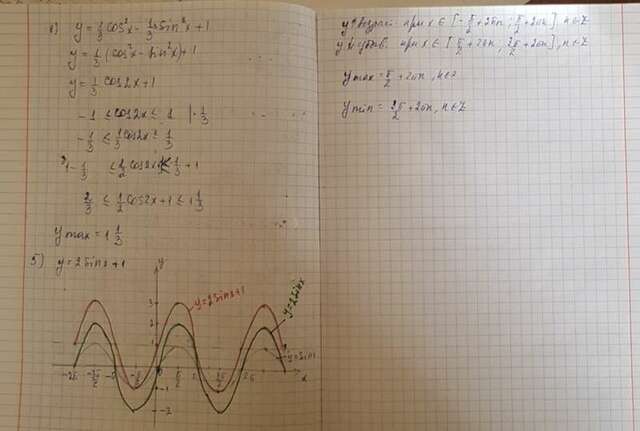 y = 1/3 cos²x - 1/3 sin²x + 1
y = 1/3 (cos²x - sin²x) + 1
y = 1/3 cos2x + 1
-1 ≤ cos2x ≤ 1 | · 1/3
-1/3 ≤ 1/3 cos2x ≤ 1/3
1 - 1/3 ≤ 1/2 cos2x ≤ 1/3 + 1
2/3 ≤ 1/2 cos2x + 1 ≤ 1 1/3
y max = 1 1/3
5) y = 2 sinx + 1
y
y=2sinx+1
y=2sinx
y=sinx
3
2
1
-1
-2
-2π
x
при x ∈ [-π/2 + 2πn ; π/2 + 2πn], n ∈ Z
при x ∈ [π/2 + 2πn ; 3π/2 + 2πn], n ∈ Z
y max = π/2 + 2πn, n ∈ Z
y min = 3π/2 + 2πn, n ∈ Z